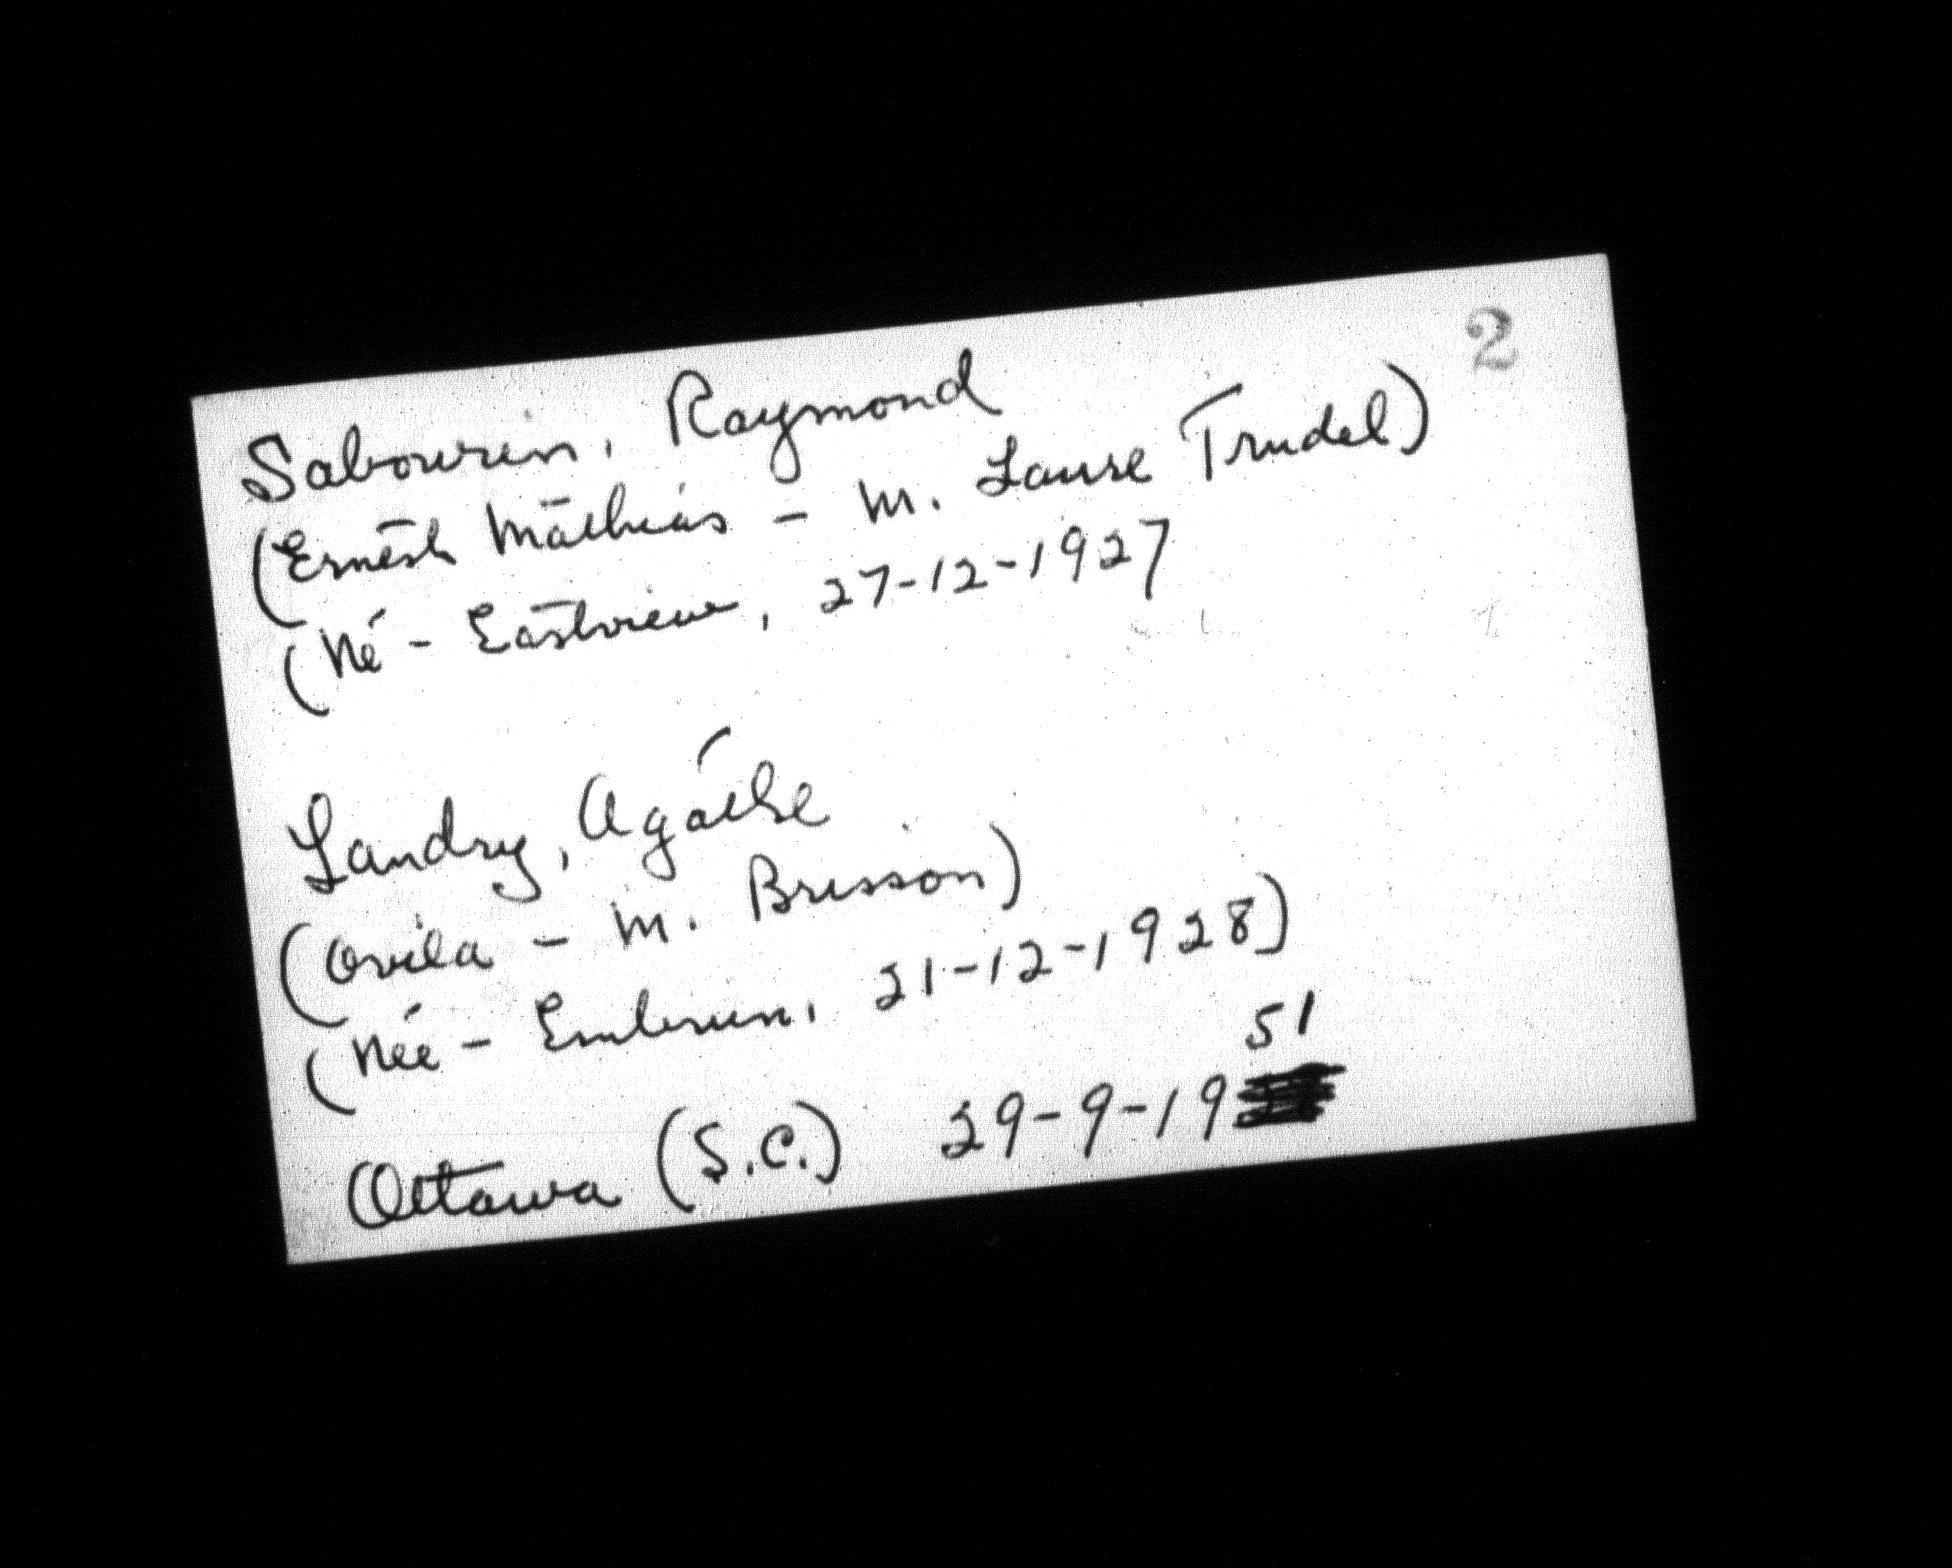 2
Sabourin, Raymond
(Ernest Mathias - M. Laure Trudel)
(Né - Eastview, 27-12-1927
Landry, Agathe
(Ovila - M. Brisson)
(Née - Embrun, 21-12-1928)
51
Ottawa (S.C.) 29-9-19